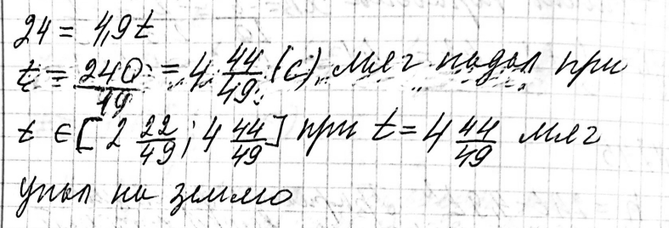 24 = 4,9t
t = 240/49 = 4 44/49 (с), мяг падал при
t ∈ [2 22/49; 4 44/49] при t = 4 44/49 мяг
упал на землю